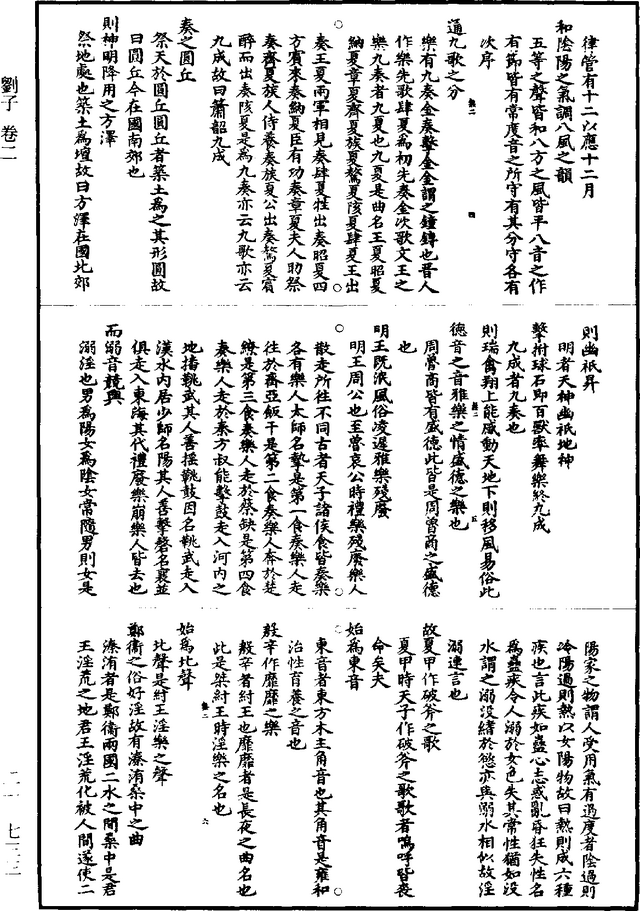 律管有十二以應十二月
和陰陽之氣調八風之韻
五等之聲皆和八方之風皆平八音之作
有節皆有常度音之所守有其分守各有
次序
通九歌之分
樂有九奏金奏擊金金謂之鐘鎛也晉人
作樂先歌肆夏為初先奏金次歌文王之
樂九奏者九夏也九夏是曲名王夏昭夏
納夏章夏齊夏族夏驁夏陔夏肆夏王出
奏王夏兩軍相見奏肆夏牲出奏昭夏四
方賓來奏納夏臣有功奏章夏夫人助祭
奏齊夏族人侍奏族夏公出奏驁夏賓
醉而出奏陔夏是為九奏亦云九歌亦云
九成故曰簫韶九成
奏之圓丘
祭天於圓丘圓丘者築土為之其形圓故
曰圓丘今在國南郊也
則神明降用之方澤
祭地處也築土為壇故曰方澤在國北郊
劉子 卷二
則幽祇昇
明者天神幽祇地神
擊拊球石即百獸率舞樂終九成
九成者九奏也
則瑞禽翔上能感動天地下則移風易俗此
德音之音雅樂之情盛德之樂也
周魯商皆有盛德此皆是周魯商之盛德
也
明王既泯風俗凌遲雅樂殘廢
明王周公也至魯哀公時禮樂殘廢樂人
散走所往不同古者天子諸侯食皆奏樂
各有樂人太師名摯是第一食奏樂人走
往於齊亞飯干是第二食奏樂人奔於楚
繚是第三食奏樂人走於蔡缺是第四食
奏樂人走於秦方叔能擊鼓走入河內之
地播鞉武其人善搖鞉鼓因名鞉武走入
漢水內居少師名陽其人善擊磬名襄並
俱走入東海其代禮廢樂崩樂人皆去也
而溺音競興
溺淫也男為陽女為陰女常隨男則女是
陽家之物謂人受用氣有過度者陰過則
冷陽過則熱以女陽物故曰熱則成六種
疾也言此疾如蠱心志惑亂昏狂失性名
為蠱疾令人溺於女色失其常性猶如沒
水謂之溺沒緒於慾亦與溺水相似故淫
溺連言也
故夏甲作破斧之歌
夏甲時天子作破斧之歌歌者嗚呼皆喪
命矣夫
始為東音
東音者東方木主角音也其角音是雍和
治性育養之音也
殷辛作靡靡之樂
殷辛者紂王也靡靡者是長夜之曲名也
此是桀紂王時淫樂之名也
始為北聲
北聲是紂王淫樂之聲
鄭衛之俗好淫故有溱洧桑中之曲
溱洧者是鄭衛兩國二水之間桑中是君
王淫荒之地君王淫荒化被人間遂使二
二一 七三三